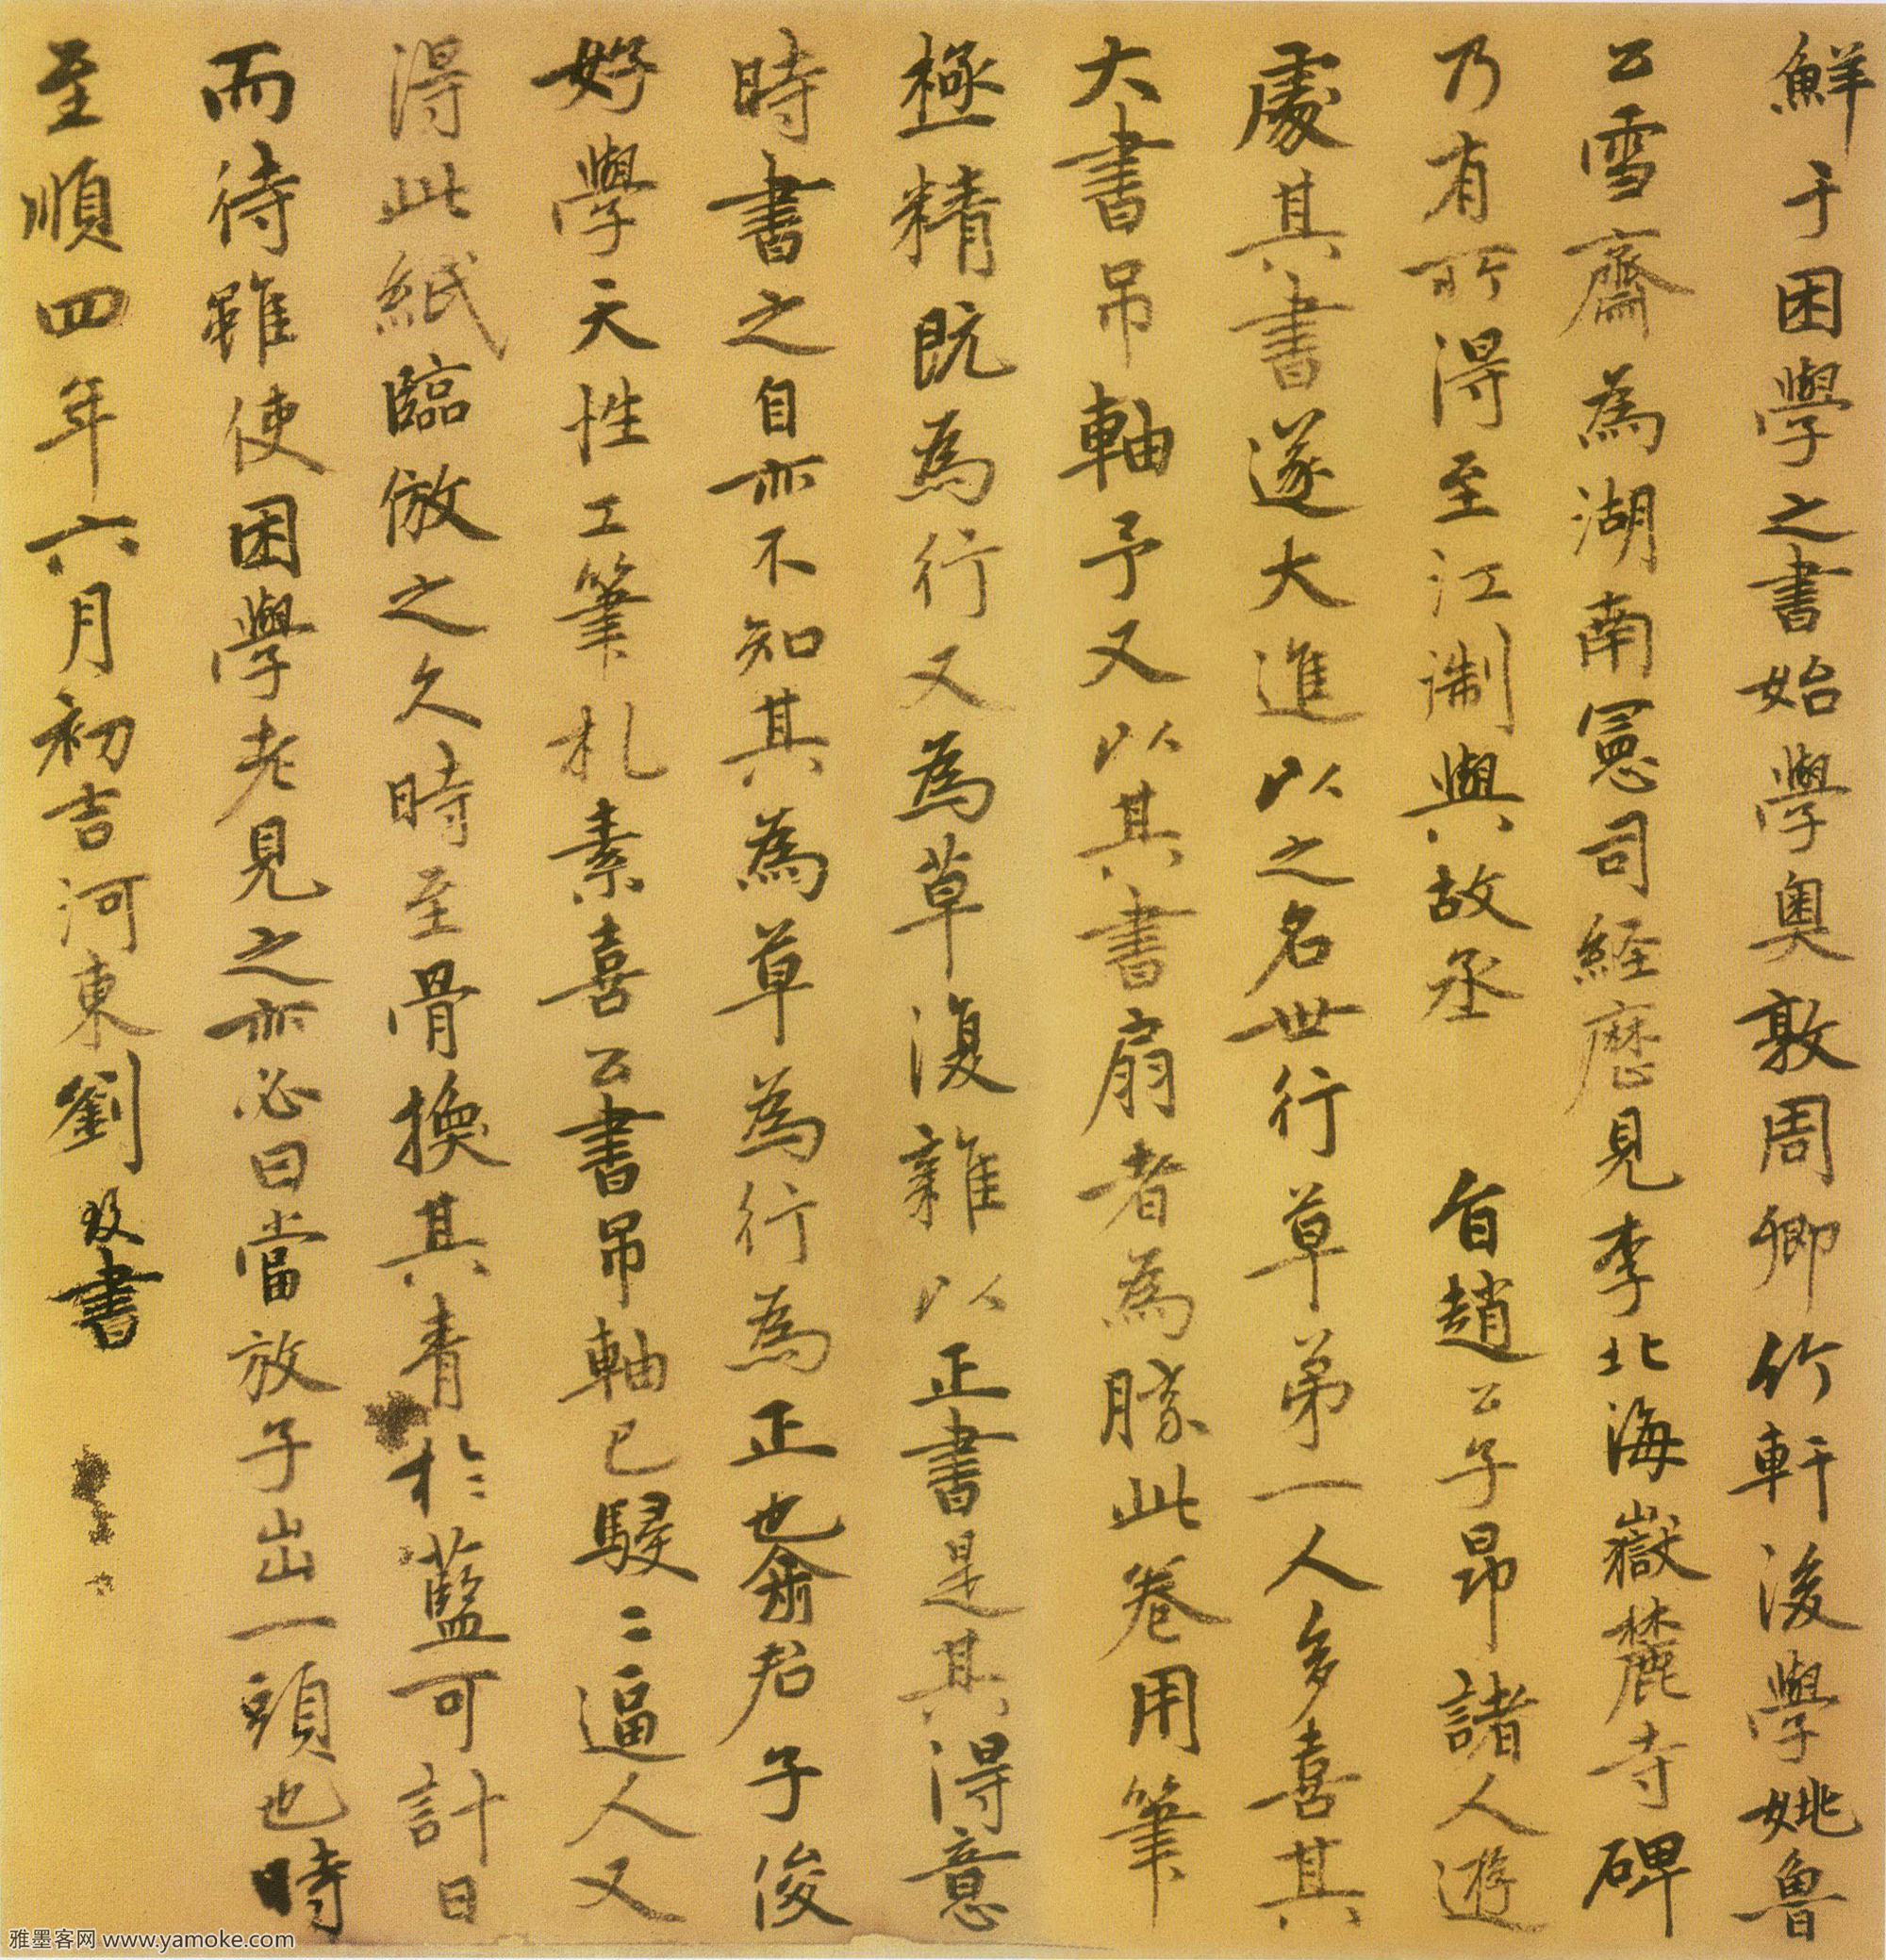 鮮于困學之書始學奧敦周卿竹軒後學姚魯
公雪齋為湖南憲司経歷見李北海嶽麓寺碑
乃有所得至江淛與故丞 旨趙公子昂諸人遊
處其書遂大進以之名世行草第一人多喜其
大書吊軸予又以其書扇者為勝此卷用筆
極精既為行又為草復雜以正書是其得意
時書之自亦不知其為草為行為正也俞君子俊
好學天性工筆札素喜公書吊軸已駸〻逼人又
得此紙臨倣之久時至骨換其青於藍可計日
而待雖使困學老見之亦必曰當放子出一頭也時
至順四年六月初吉河東劉致書
雅墨客网 www.yamoke.com